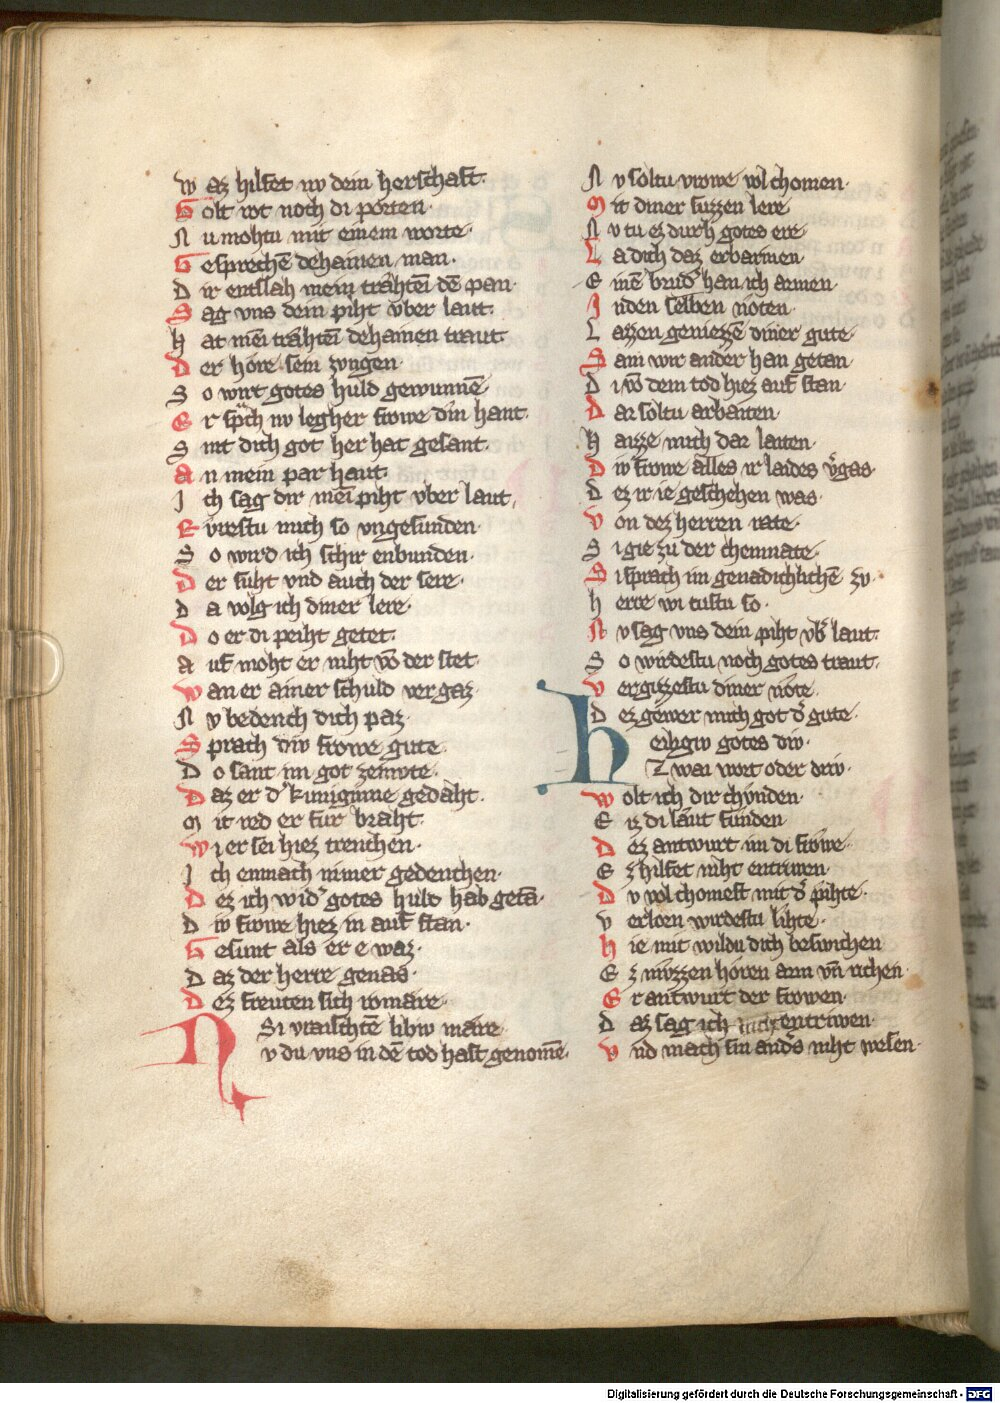 W az hilfet nv dein herschaft·
G olt rot noch di porten·
N u mohtu mit einem worte·
G esprechē dehainen man·
D ir entslah mein trähtēi dē pan·
S ag vns dein piht vber laut·
H at mēi trähtēi dehainen traut·
D er höre sein zvngen·
S o wirt gotes huld gewunnē·
E r sprch nv legher frowe din hant·
S int dich got her hat gesant·
A n mein par haut·
I ch sag dir mēi piht vber laut·
R vrestu mich so vngesunden·
S o wird ich schir enbunden·
D er suht vnd auch der sere·
D a volg ich diner lere·
D o er di peiht getet·
A uf moht er niht vō der stet·
W an er ainer schuld vergaz·
N v bedench dich paz·
S prach div frowe gute·
D o sant im got zemvte·
D az er dˀ kuniginne gedaht·
M it red er für braht·
W i er sei hiez trenchen·
I ch enmach nimer gedenchen·
D ez ich widˀ gotes huld hab getā·
D iv frowe hiez in auf stan·
G esunt als er e waz·
D az der herre genas·
D ez freuten sich romäre·
Si vraischtē libiv märe·
N v du vns in dē tod hast genomē·
N v soltu vrowe wlchomen·
M it diner suzzen lere
N v tu ez durh gotes ere·
L a dich daz erbarmen
E inē brudˀ han ich armen
I nden selben nöten·
L azzen geniezzē diner gute·
S am wir ander han getan
D i vō dem tod hiez auf stan
D ar soltu arbaiten
H aizze mich dar laiten·
D iv frowe alles ir laides vˀgas
D ez ir ie geschehen was·
V on dez herren rate·
S i gie zu der chemnate·
S i sprach im genadichlichē zv·
H erre wi tustu so·
N v sag vns dein piht vbˀ laut·
S o wirdestu noch gotes traut·
V ergizzestu diner nöte
D ez gewer mich got dˀ gute·
H eiligiv gotes div·
Z wai wort oder driv·
W olt ich dir chvnden·
E iz di laut funden
D ez antwurt im di frowe·
E z hilfet niht entriwen·
D v vol chomest mit dˀ pihte·
V erloen wirdestu lihte·
H ie mit wildu dich beswichen
E z mvzzen hören arm vn̄ richen·
E r antwurt der frowen·
D az sag ich entriwen·
V nd mach sin andˀs niht wesen·
Digitalisierung gefördert durch die Deutsche Forschungsgemeinschaft - DFG